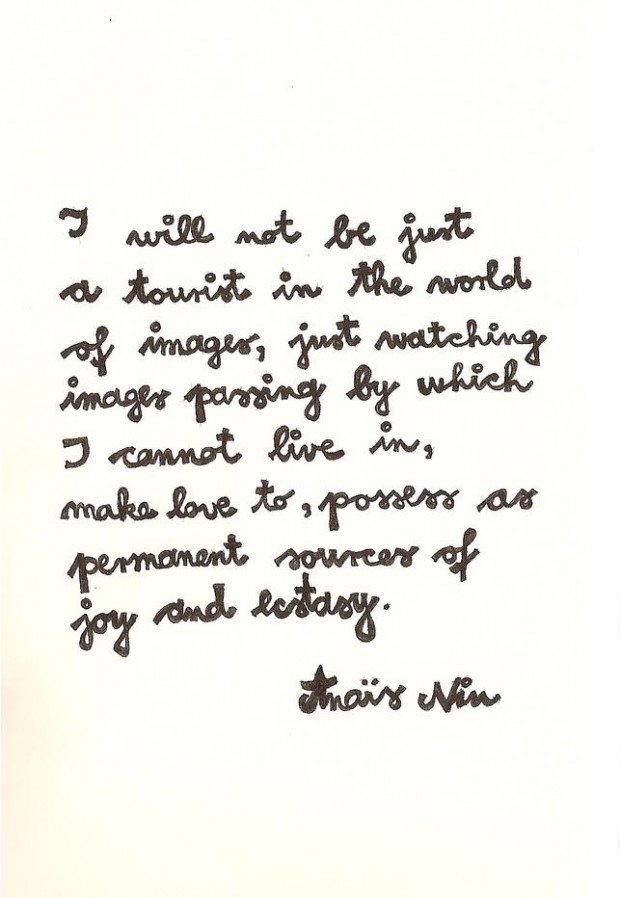 I will not be just
a tourist in the world
of images, just watching
images passing by which
I cannot live in,
make love to, possess as
permanent sources of
joy and ecstasy.
Anaïs Nin